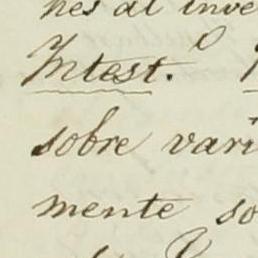 nes al inve
Intest.º
sobre vari
mente so